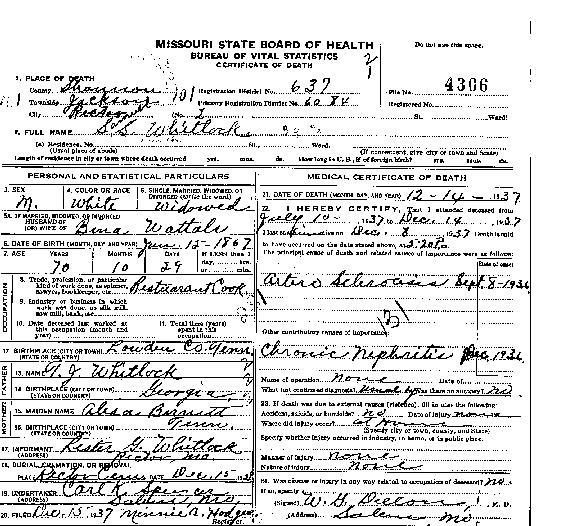 MISSOURI STATE BOARD OF HEALTH
BUREAU OF VITAL STATISTICS
CERTIFICATE OF DEATH
Do not use this space.
1. PLACE OF DEATH
County Shannon Registration District No. 637 File No. 4306
Township Jackson Primary Registration District No. Registered No.
City Rector (No. St. Ward)
2. FULL NAME S.S. Whitlock
(a) Residence, No. St., Ward.
(Usual place of abode) (If nonresident, give city or town and State)
Length of residence in city or town where death occurred yrs. mos. ds. How long in U. S., if of foreign birth? yrs. mos. ds.
PERSONAL AND STATISTICAL PARTICULARS
3. SEX 4. COLOR OR RACE 5. SINGLE, MARRIED, WIDOWED, OR DIVORCED (write the word)
M. White Widowed
5A. IF MARRIED, WIDOWED, OR DIVORCED
HUSBAND OF
(OR) WIFE OF
6. DATE OF BIRTH (MONTH, DAY, AND YEAR) 15-1867
7. AGE YEARS MONTHS DAYS If LESS than 1
70 10 29
OCCUPATION
8. Trade, profession, or particular kind of work done, as spinner, sawyer, bookkeeper, etc. Restaurant Cook
9. Industry or business in which work was done, as silk mill, saw mill, bank, etc.
10. Date deceased last worked at this occupation (month and year)
11. Total time (years) spent in this occupation
12. BIRTHPLACE (CITY OR TOWN) Co. Tenn.
(STATE OR COUNTRY)
FATHER
13. NAME J. Whitlock
14. BIRTHPLACE (CITY OR TOWN) Georgia
(STATE OR COUNTRY)
MOTHER
15. MAIDEN NAME
16. BIRTHPLACE (CITY OR TOWN) Tenn.
(STATE OR COUNTRY)
17. INFORMANT Lester G. Whitlock
(ADDRESS) Rector Mo
18. BURIAL, CREMATION, OR REMOVAL
PLACE Rector Cem DATE Dec 15-1937
19. UNDERTAKER Carl K. Spencer
(ADDRESS) Salem Mo
20. FILED Dec. 15-1937 Minnie A. Hodges
Registrar
MEDICAL CERTIFICATE OF DEATH
21. DATE OF DEATH (MONTH, DAY, AND YEAR) 12-14-1937
22. I HEREBY CERTIFY, That I attended deceased from
July 10 1937 to Dec. 14, 1937
Dec. 8 1937 Death is said
to have occurred on the date stated above, at 5:20 P.m.
The principal cause of death and related causes of importance were as follows:
Date of onset
Artero Schlrousis Sept. 8-1936
131
Other contributory causes of importance:
Chronic Nephritis Dec 1936
Name of operation none Date of
What test confirmed diagnosis? Was there an autopsy? no
23. If death was due to external causes (violence), fill in also the following:
Accident, suicide, or homicide? no Date of injury
Where did injury occur?
(Specify city or town, county, and State)
Specify whether injury occurred in industry, in home, or in public place.
Manner of injury none
Nature of injury none
24. Was disease or injury in any way related to occupation of deceased? no
If so, specify
(Signed) M. D.
(Address) Salem Mo